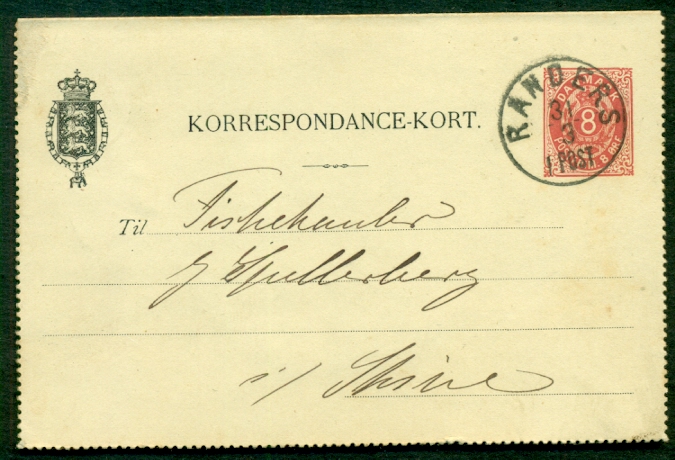 KORRESPONDANCE-KORT.
RANDERS
31
3
1 POST
DANMARK
8
POSTFRIM 8 ØRE
Til Fiskehandler
J Spellerberg
i/ Skive